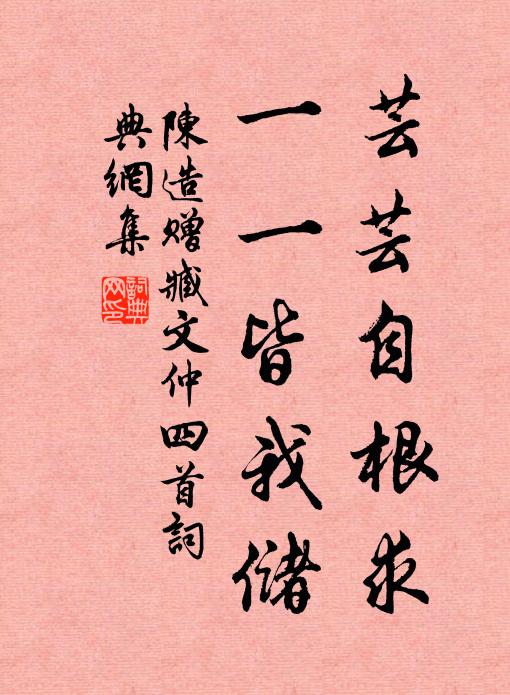 芸芸自根求
一一皆我儲
陳造贈臧文仲四首詞
典網集
詞典
网印